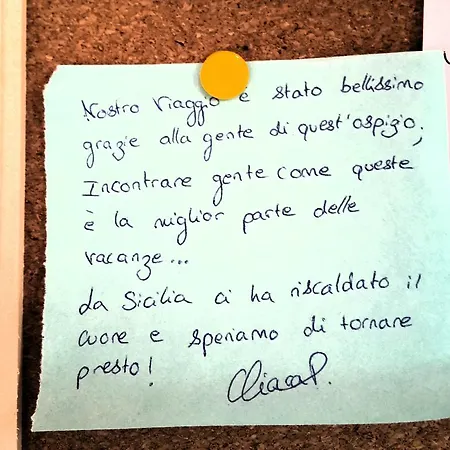 Nostro Viaggio è stato bellissimo
grazie alla gente di quest'ospizio,
Incontrare gente come queste
è la miglior parte delle
vacanze...
da Sicilia ci ha riscaldato il
cuore e speriamo di tornare
presto!
Chiara P.